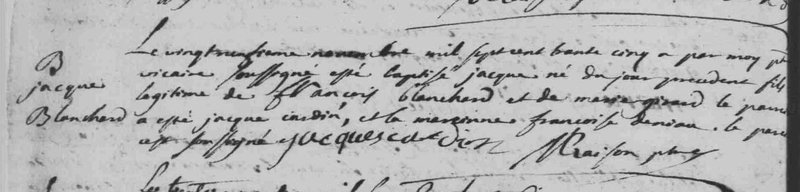 B
jacque
Blanchard
Le vingtneufieme novembre mil sept cent trante cinq a par moy ptre
vicaire soussigné esté baptisé jacque né du jour precedent fils
legitime de françois blanchard et de marie girard le parain
a esté jacque cardin, et la maraine francoise deniau. le parain
est soussigné jacques cardin Raison ptre